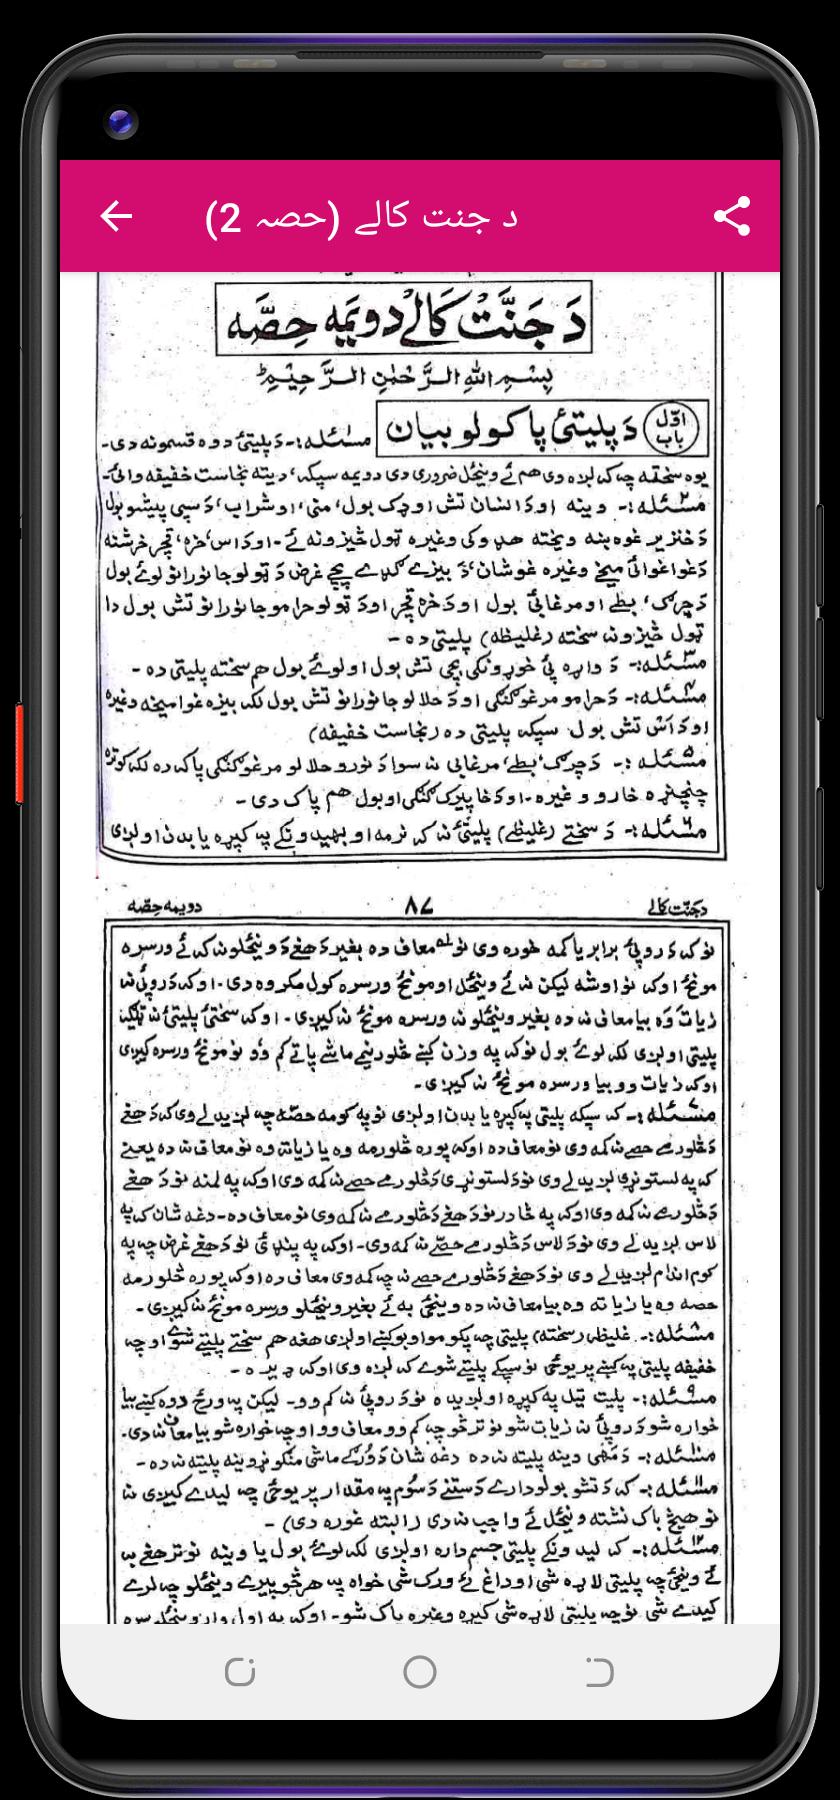 د جنت کالے (حصہ 2)
دَ جَنَّتْ کَالےْ دویَمِه حِصَّه
بِسْمِ اللهِ الرَّحْمٰنِ الرَّحِيْمِ
اوّل باب
دَ پلیتئ پاکولو بیان
مسئله:- دَ پلیتئ دوه قسمونه دی-
یوه سخته چه که لږه وی هم ئے وینځل ضروری دی دویمه سپکه، دیته نجاست خفیفه وائی-
مسئله:- وینه او دَ انسان تش اوډک بول، منی، اوشراب، دَ سپی پیشو بول
دَ خنزیر غوښه ویښته هډوکی وغیره ټول څیزونه ئے- او دَ اس، خره، قچر خرشنه
دَ غوا غوائی میښے وغیره غوشان، دَ بیزے ګډے پچے غرض دَ ټولو ځانورانو لوئے بول
دَ چرګ، بطے او مرغابئ بول او دَ خره قچر او دَ ټولو حرامو ځانورانو تش بول دا
ټول څیزونه سخته (غلیظه) پلیتی ده -
مسئله:- دَ واړه پئ خورونکی بچی تش بول او لوئے بول هم سخته پلیتی ده -
مسئله:- دَ حرامو مرغو ګنګی او دَ حلالو ځانورانو تش بول لکه بیزه غوا میښه وغیره
او دَ اَس تش بول سپکه پلیتی ده (نجاست خفیفه)
مسئله:- دَ چرګ، بطے، مرغابی نه سوا دَ نورو حلالو مرغو ګنګی پاک ده لکه کوتره
وغیره- او دَ ښاپیرک ګنګی او بول هم پاک دی -
مسئله:- دَ سختے (غلیظے) پلیتئ نه که نرمه او بهیدونکے په کپړه یا بدن اولږی
دجنّت کالے
۸۷
دویمه حِصّه
نو که دَ روپئ برابر یا کمه خوره وی نو معاف ده بغیر دَهغے دَ وینځلو نه که ئے ورسره
مونځ اوکه نو اوشه لیکن نه ئے وینځل او مونځ ورسره کول مکروه دی- او که دَ روپئ نه
زیات وه بیا معاف نه ده بغیر وینځلو نه ورسره مونځ نه کیږی- او که سختئ پلیتئ نه ټینګه
پلیتی اولږی لکه لوئے بول نو که په وزن کښے څلورنیمے ماشے یا تے کم وو نو مونځ ورسره کیږی
او که زیات وو بیا ورسره مونځ نه کیږی-
مسئله:- که سپکه پلیتی په کپړه یا بدن اولږی نو په کومه حصّه چه لږیدلے وی که دَ هغے
دَ څلورمے حصے نه کمه وی نو معاف ده او که پوره څلورمه وه یا زیاته وه نو معاف نه ده یعنے
که په لستوڼی لږیدلے وی نو دَ لستوڼی دَ څلورمے حصے نه کمه وی او که په لمنه نو دَ هغے
دَ څلورمے نه کمه وی او که په څادر نو دَ هغے دَ څلورمے نه کمه وی نو معاف ده- دغه شان که په
لاس لږیدلے وی نو دَ لاس دَ څلورمے حصّے نه کمه وی- او که په پنډئ نو دَ هغے غرض چه په
کوم اندام لږیدلے وی نو دَ هغے دَ څلورمے حصے نه چه کمه وی معاف ده او که پوره څلورمه
حصه وه یا زیاته وه بیا معاف نه ده وینځی به ئے بغیر وینځلو ورسره مونځ نه کیږی-
مسئله:- غلیظه (سخته) پلیتی چه پکومو اوبو کښے اولږی هغه هم سختے پلیتے شوے او چه
خفیفه پلیتی په کښے پریوځی نو سپکے پلیتے شوے که لږه وی او که ډیره -
مسئله:- پلیت تیل په کپړه اولږیده نو دَ روپئ نه کم وو- لیکن په ورځ دوه کښے بیا
خواره شو دَ روپئ نه زیات شو نو ترڅو چه کم وو معاف وو او چه خواره شو بیا معاف نه دی-
مسئله:- دَ مهی وینه پلیته نه ده دغه شان دَوړے ماشی منګوڼو وینه پلیته نه ده -
مسئله:- که دَ تشو بولو دارے دَ ستنے دَ سوم په مقدار پریوځی چه لیدے کیږی نه
نو هیڅ باک نشته وینځل ئے واجب نه دی (البته غوره دی) -
مسئله:- که لیدونکے پلیتی جسم داره اولږی لکه لوئے بول یا وینه نو تر هغے به
ئے وینځی چه پلیتی لاړه شی او داغ ئے ورک شی خواه په هر څو پیرے وینځلو چه لرے
کیدے شی نو چه پلیتی لاړه شی کپړه وغیره پاک شو- او که په اول وار وینځلو سره